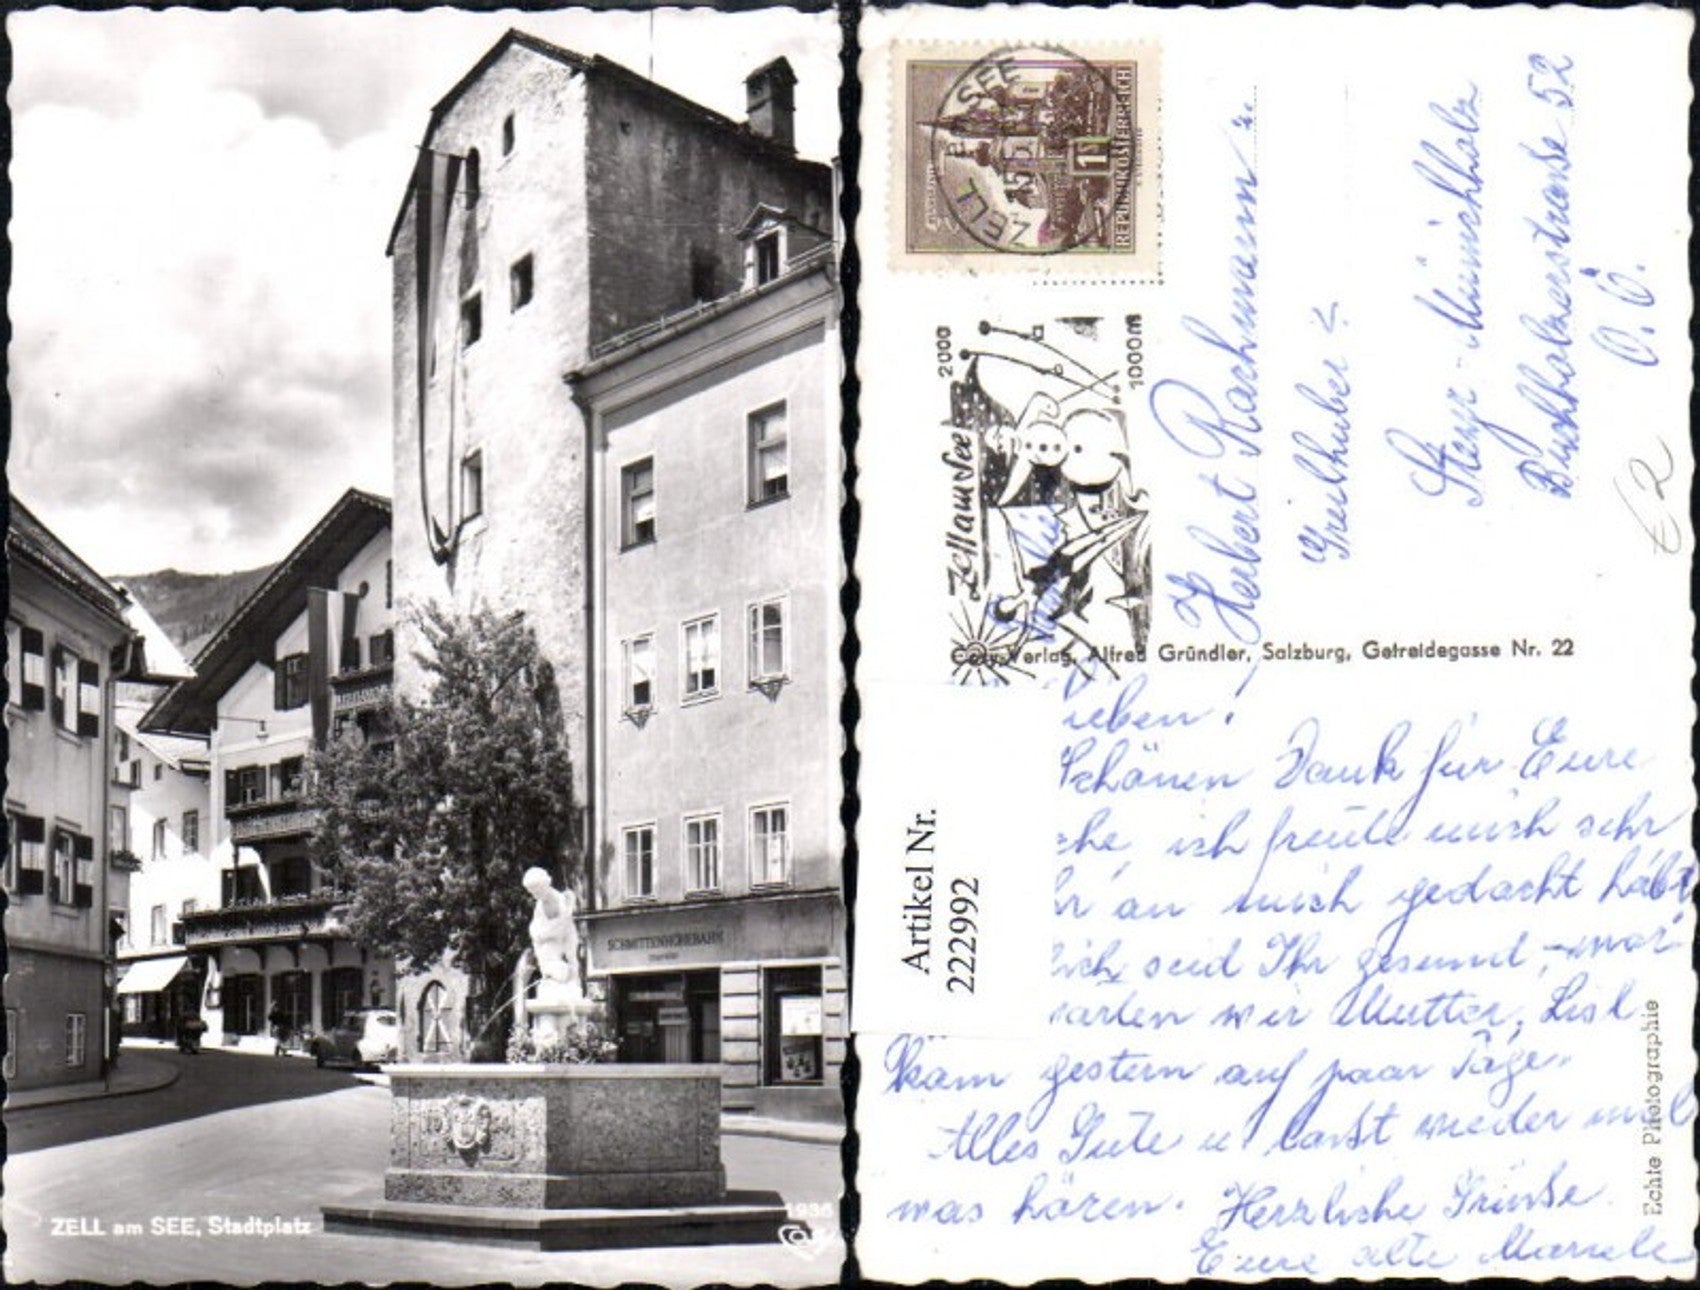 SCHMITTENHÖHEBAHN
ZELL am SEE, Stadtplatz
1936
ZELL SEE
15
1
REPUBLIK ÖSTERREICH
2000
1000M
Zell am See
Herbert Rachmann u.
Greilhuber
Steyr - Münichholz
Buchholzerstraße 52
O. Ö.
€2
Cosy-Verlag, Alfred Gründler, Salzburg, Getreidegasse Nr. 22
Artikel Nr.
222992
ieben!
Schönen Dank für Eure
che, ich freute mich sehr
hr an mich gedacht habt
lich seid Ihr gesund,
arten wir Mutter, Lisl
kam gestern auf paar Tage.
Alles Gute u laßt wieder mal
was hören. Herzliche Grüße
Eure alte
Echte Photographie